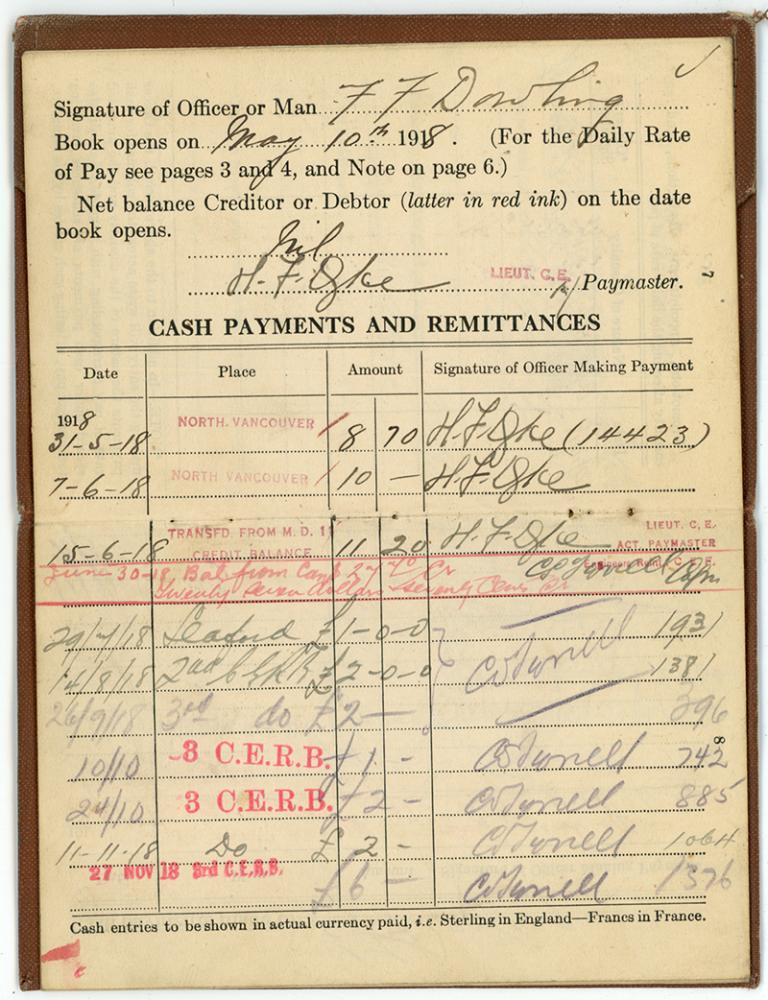 Signature of Officer or Man F F Dowling
Book opens on May 10th 1918. (For the Daily Rate
of Pay see pages 3 and 4, and Note on page 6.)
Net balance Creditor or Debtor (latter in red ink) on the date
book opens.
Nil
H. F. Oke LIEUT. C.E. Paymaster.
7
CASH PAYMENTS AND REMITTANCES
Date Place Amount Signature of Officer Making Payment
1918
31-5-18 NORTH VANCOUVER 8 70 H. F. Oke (14423)
7-6-18 NORTH VANCOUVER 10 — H. F. Oke
15-6-18 TRANSFD. FROM M. D. 11 CREDIT BALANCE 11 20 H. F. Oke LIEUT. C. E. ACT. PAYMASTER
June 30-18 Bal from Can $ 27 70 Cr Capn
Twenty Seven dollars seventy Cents Cr
29/7/18 Seaford £1-0-0 1931
14/8/18 2nd CERB £2-0-0 1381
26/9/18 3rd do £2 — 396
10/10 3 C.E.R.B. £1 - 742
8
24/10 3 C.E.R.B. £2 - 885
11-11-18 Do £2 - 1064
27 NOV 18 3rd C.E.R.B. £6 — 1376
Cash entries to be shown in actual currency paid, i.e. Sterling in England—Francs in France.